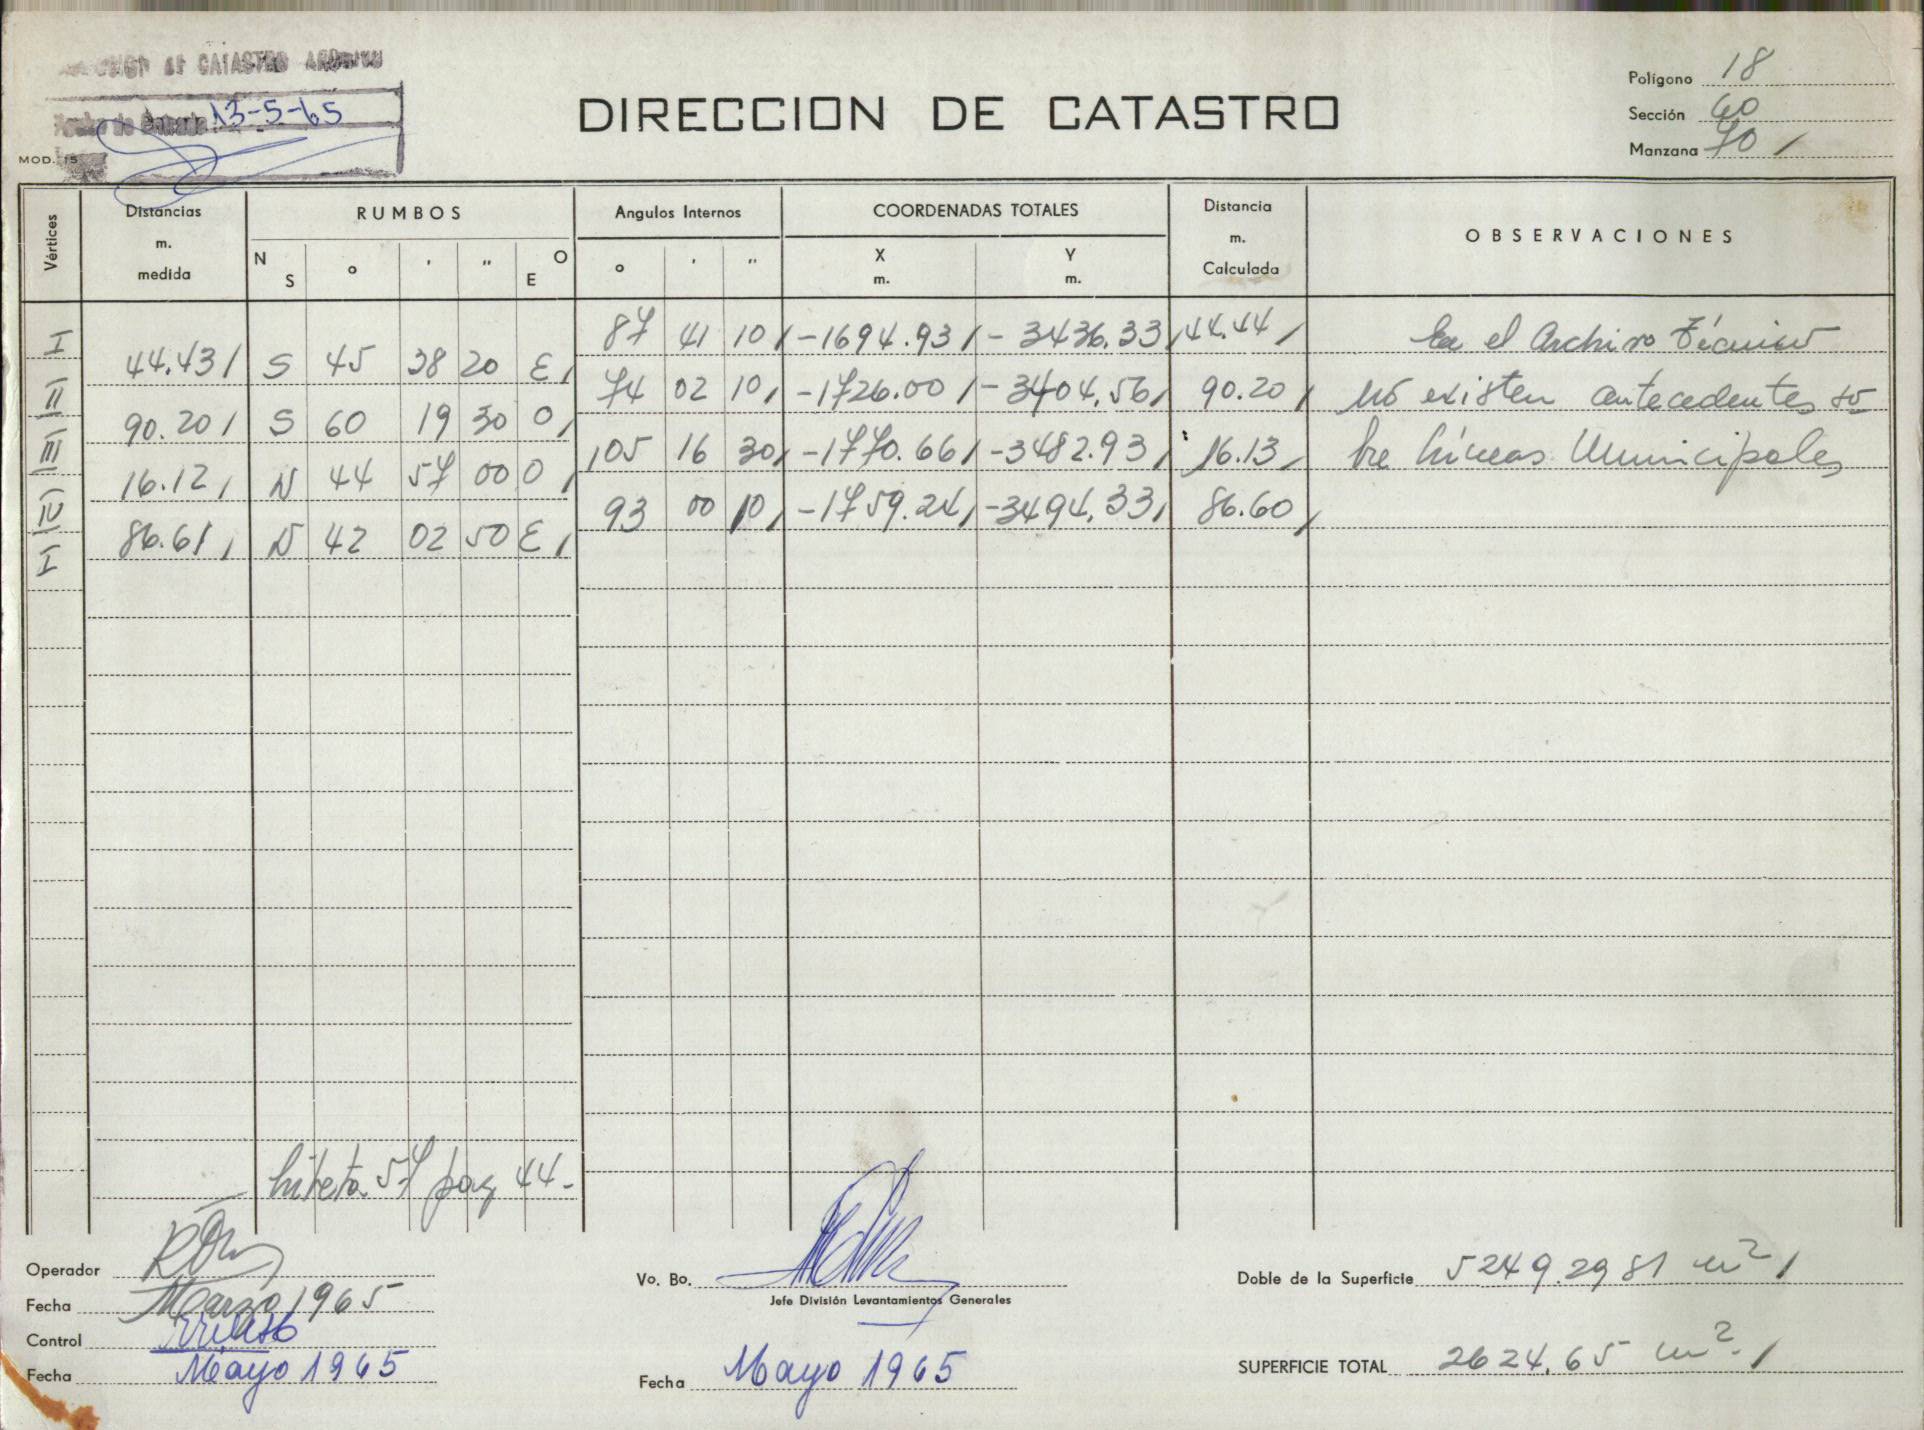 CATASTRO ARCHIVO
Fecha de Entrada 13-5-65
MOD. 15
DIRECCION DE CATASTRO
Polígono 18
Sección 60
Manzana 70 /
Vértices Distancias m. medida RUMBOS N S o ' " O E Angulos Internos o ' " COORDENADAS TOTALES X m. Y m. Distancia m. Calculada OBSERVACIONES
I 87 41 10 / -1694.93 / - 3436.33 / 44.44 / En el Archivo Técnico
44.43 / S 45 38 20 E /
II 74 02 10 / -1726.00 / - 3404.56 / 90.20 / no existen antecedentes so
90.20 / S 60 19 30 O /
III 105 16 30 / -1770.66 / -3482.93 / 16.13 / bre Líneas Municipales
16.12 / N 44 57 00 O /
IV 93 00 10 / -1759.24 / -3494.33 / 86.60 /
86.61 / N 42 02 50 E /
I
Libreta 57 pag 44-
Operador
Fecha Marzo 1965
Control
Fecha Mayo 1965
Vo. Bo.
Jefe División Levantamientos Generales
Fecha Mayo 1965
Doble de la Superficie 5249.2981 m2 /
SUPERFICIE TOTAL 2624.65 m2. /